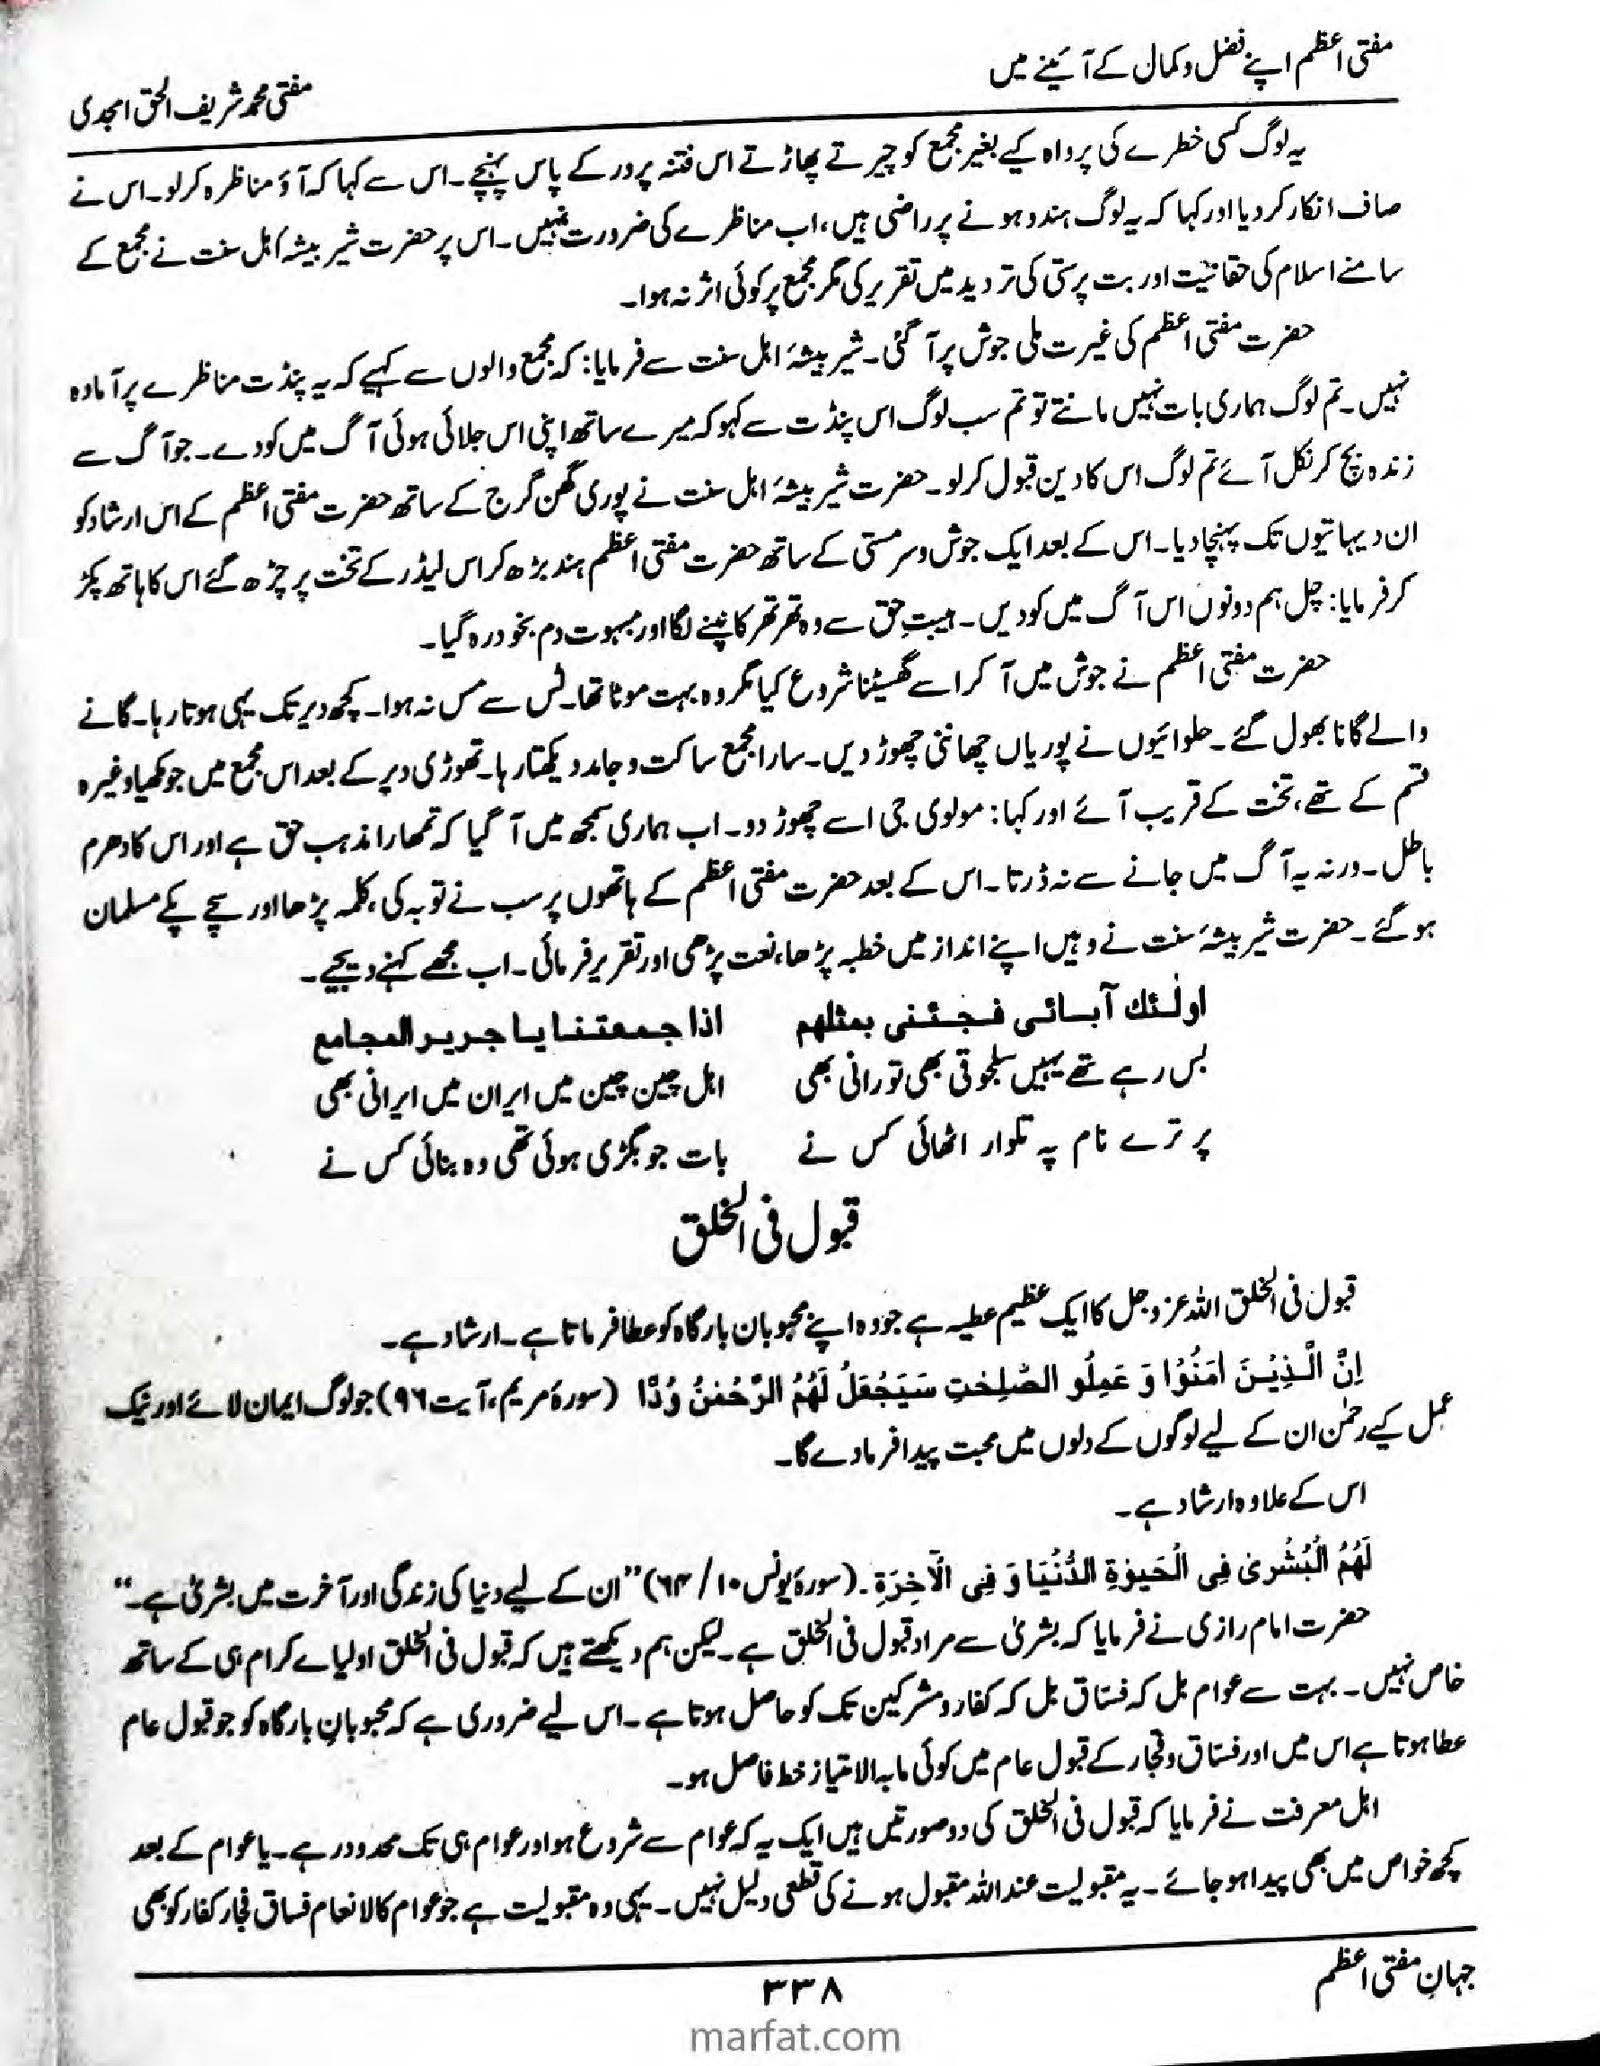 مفتی اعظم اپنے فضل و کمال کے آئینے میں
مفتی محمد شریف الحق امجدی
یہ لوگ کسی خطرے کی پرواہ کیے بغیر مجمع کو چیرتے پھاڑتے اس فتنہ پرور کے پاس پہنچے۔ اس سے کہا کہ آؤ مناظرہ کرلو۔ اس نے
صاف انکار کر دیا اور کہا کہ یہ لوگ ہندو ہونے پر راضی ہیں، اب مناظرے کی ضرورت نہیں۔ اس پر حضرت شیر بیشۂ اہل سنت نے مجمع کے
سامنے اسلام کی حقانیت اور بت پرستی کی تردید میں تقریر کی مگر مجمع پر کوئی اثر نہ ہوا۔
حضرت مفتی اعظم کی غیرت ملی جوش پر آگئی۔ شیر بیشۂ اہل سنت سے فرمایا: کہ مجمع والوں سے کہیے کہ یہ پنڈت مناظرے پر آمادہ
نہیں۔ تم لوگ ہماری بات نہیں مانتے تو تم سب لوگ اس پنڈت سے کہو کہ میرے ساتھ اپنی اس جلائی ہوئی آگ میں کودے۔ جو آگ سے
زندہ بچ کر نکل آئے تم لوگ اس کا دین قبول کرلو۔ حضرت شیر بیشۂ اہل سنت نے پوری گھن گرج کے ساتھ حضرت مفتی اعظم کے اس ارشاد کو
ان دیہاتیوں تک پہنچا دیا۔ اس کے بعد ایک جوش و سرمستی کے ساتھ حضرت مفتی اعظم ہند بڑھ کر اس لیڈر کے تخت پر چڑھ گئے اس کا ہاتھ پکڑ
کر فرمایا: چل ہم دونوں اس آگ میں کودیں۔ ہیبتِ حق سے وہ تھر تھر کانپنے لگا اور مبہوت دم بخود رہ گیا۔
حضرت مفتی اعظم نے جوش میں آکر اسے گھسیٹنا شروع کیا مگر وہ بہت موٹا تھا۔ ٹس سے مس نہ ہوا۔ کچھ دیر تک یہی ہوتا رہا۔ گانے
والے گانا بھول گئے۔ حلوائیوں نے پوریاں چھاننی چھوڑ دیں۔ سارا مجمع ساکت و جامد دیکھتا رہا۔ تھوڑی دیر کے بعد اس مجمع میں جو مکھیا وغیرہ
قسم کے تھے، تخت کے قریب آئے اور کہا: مولوی جی اسے چھوڑ دو۔ اب ہماری سمجھ میں آگیا کہ تمھارا مذہب حق ہے اور اس کا دھرم
باطل۔ ورنہ یہ آگ میں جانے سے نہ ڈرتا۔ اس کے بعد حضرت مفتی اعظم کے ہاتھوں پر سب نے توبہ کی، کلمہ پڑھا اور سچے پکے مسلمان
ہوگئے۔ حضرت شیر بیشۂ سنت نے وہیں اپنے انداز میں خطبہ پڑھا، نعت پڑھی اور تقریر فرمائی۔ اب مجھے کہنے دیجیے۔
اولٰئک آبائی فجئنی بمثلهم اذا جمعتنا یا جریر المجامع
بس رہے تھے یہیں سلجوقی بھی تورانی بھی اہل چین چین میں ایران میں ایرانی بھی
پر ترے نام پہ تلوار اٹھائی کس نے بات جو بگڑی ہوئی تھی وہ بنائی کس نے
قبول فی الخلق
قبول فی الخلق اللہ عزوجل کا ایک عظیم عطیہ ہے جو وہ اپنے محبوبان بارگاہ کو عطا فرماتا ہے۔ ارشاد ہے۔
اِنَّ الَّذِیْنَ اٰمَنُوْا وَ عَمِلُو الصّٰلِحٰتِ سَیَجْعَلُ لَهُمُ الرَّحْمٰنُ وُدًّا (سورۂ مریم، آیت ۹۶) جو لوگ ایمان لائے اور نیک
عمل کیے رحمٰن ان کے لیے لوگوں کے دلوں میں محبت پیدا فرمادے گا۔
اس کے علاوہ ارشاد ہے۔
لَهُمُ الْبُشْرىٰ فِی الْحَیٰوةِ الدُّنْیَا وَ فِی الْآخِرَةِ۔ (سورۂ یونس ۱۰/ ۶۴) ”ان کے لیے دنیا کی زندگی اور آخرت میں بشریٰ ہے۔“
حضرت امام رازی نے فرمایا کہ بشریٰ سے مراد قبول فی الخلق ہے۔ لیکن ہم دیکھتے ہیں کہ قبول فی الخلق اولیاے کرام ہی کے ساتھ
خاص نہیں۔ بہت سے عوام بل کہ فساق بل کہ کفار و مشرکین تک کو حاصل ہوتا ہے۔ اس لیے ضروری ہے کہ محبوبانِ بارگاہ کو جو قبول عام
عطا ہوتا ہے اس میں اور فساق و فجار کے قبول عام میں کوئی مابہ الامتیاز خط فاصل ہو۔
اہل معرفت نے فرمایا کہ قبول فی الخلق کی دو صورتیں ہیں ایک یہ کہ عوام سے شروع ہو اور عوام ہی تک محدود رہے۔ یا عوام کے بعد
کچھ خواص میں بھی پیدا ہوجائے۔ یہ مقبولیت عنداللہ مقبول ہونے کی قطعی دلیل نہیں۔ یہی وہ مقبولیت ہے جو عوام کالانعام فساق فجار کفار کو بھی
جہانِ مفتی اعظم
۳۳۸
marfat.com